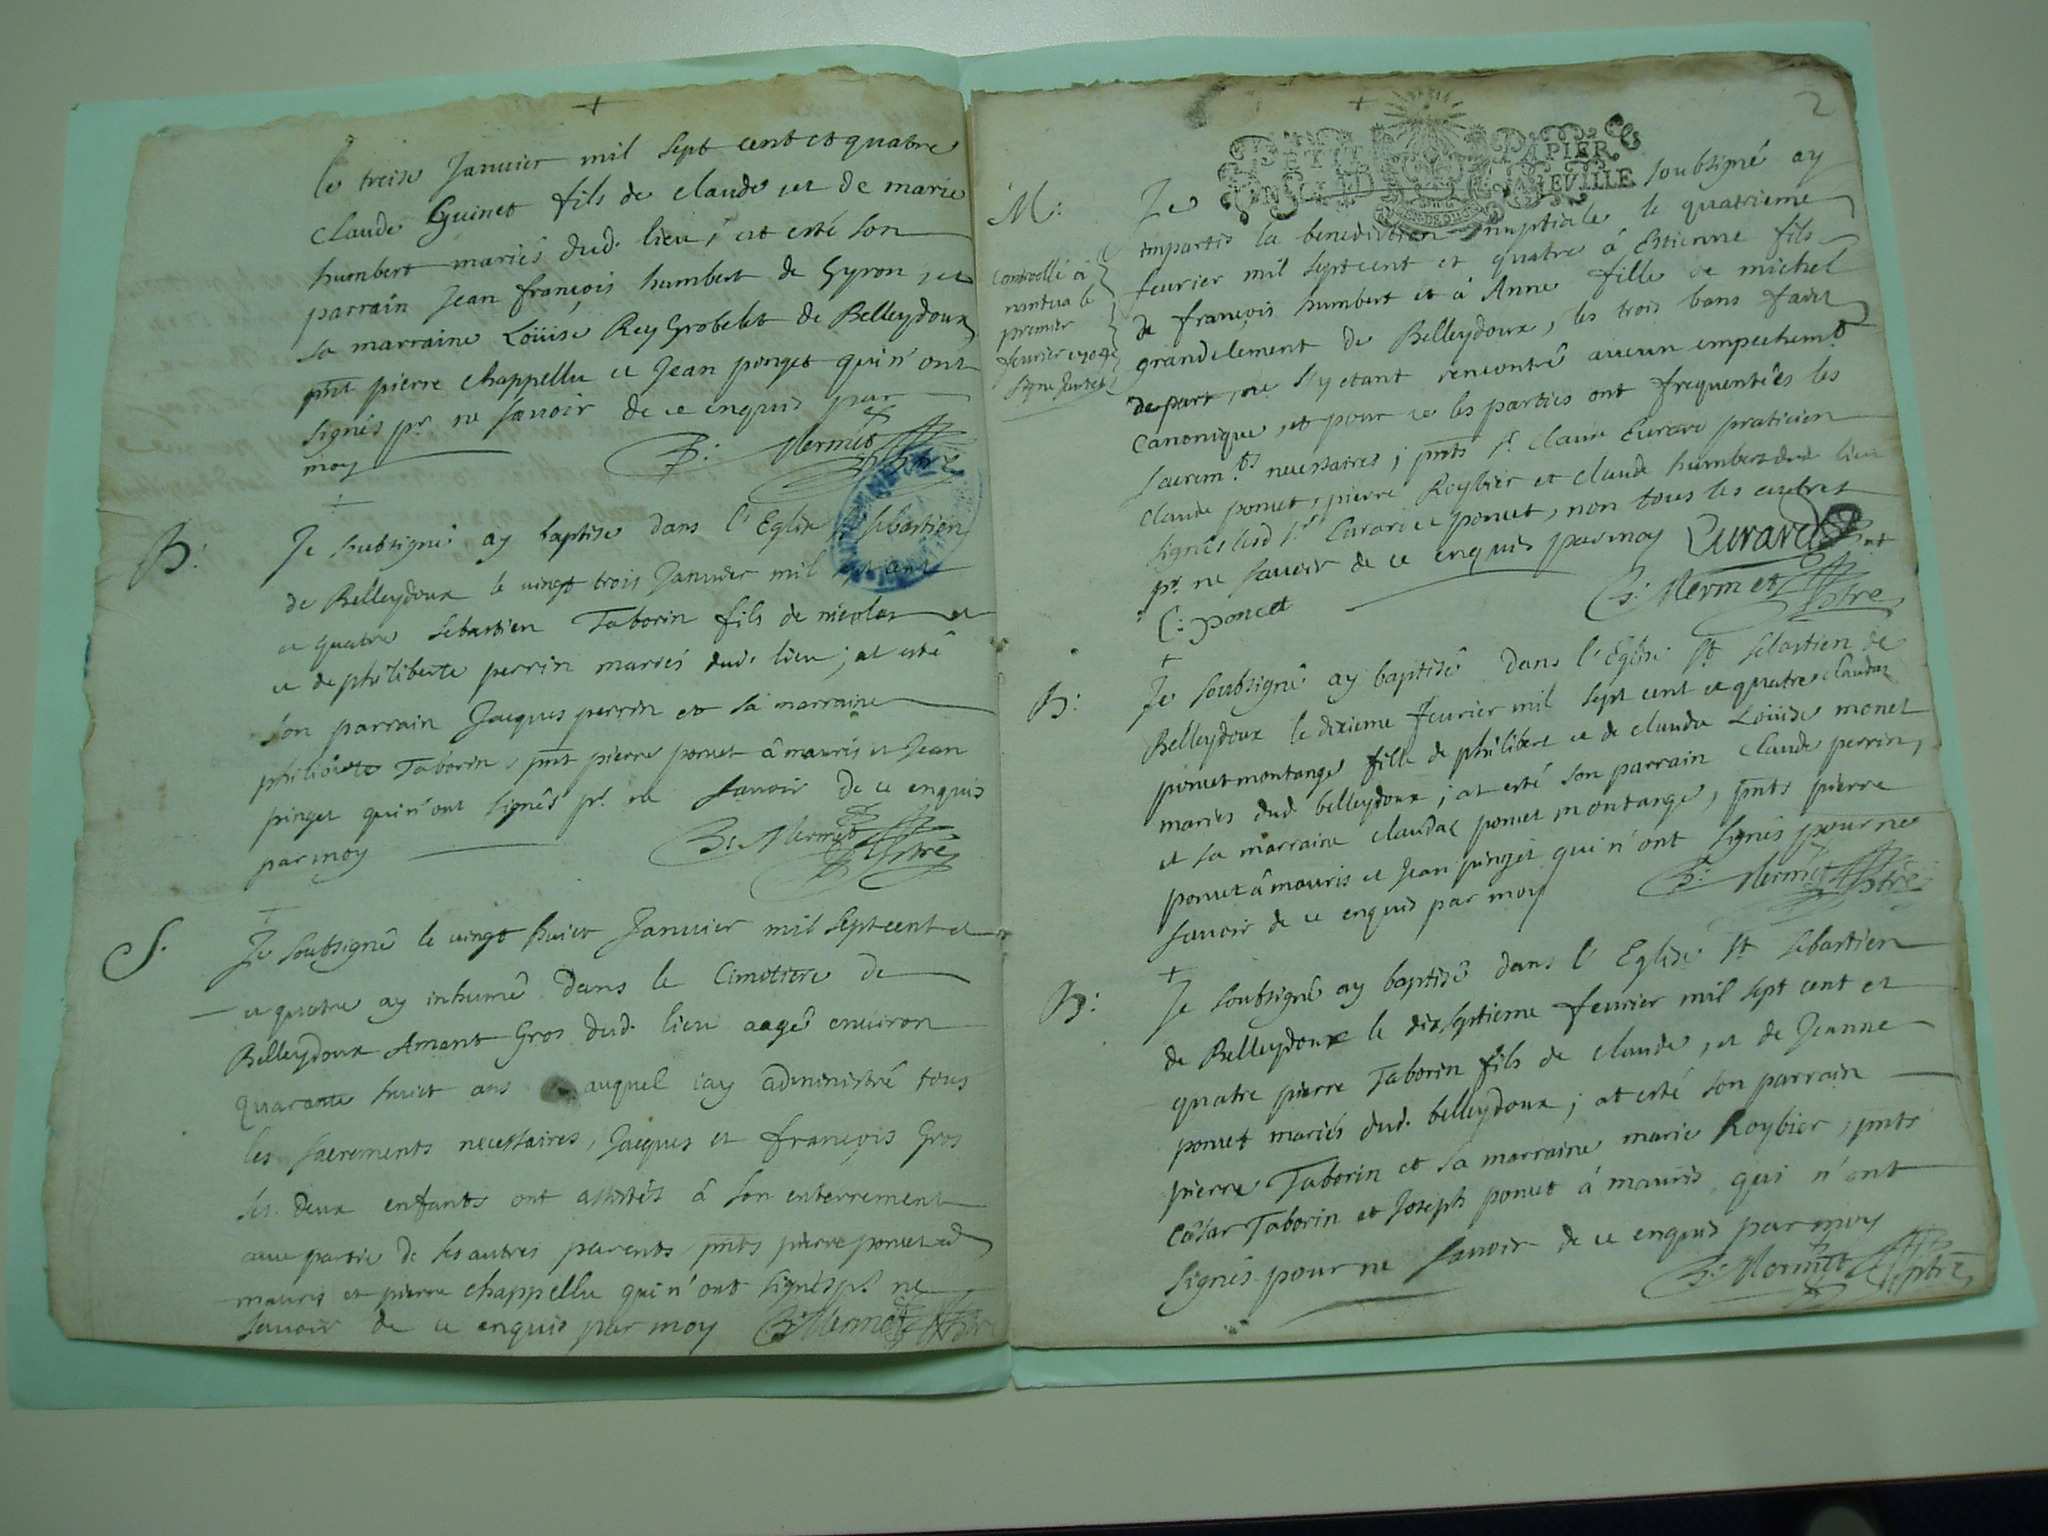 le treise Janvier mil sept cent et quatre
Claude Guinet fils de claude et de marie
humbert mariés dud. lieu, at esté son
parrain Jean françois humbert de Gyron, et
sa marraine Loüise Rey Grobelet de Belleydoux
pnt pierre chappellu et Jean ponget qui n'ont
signés pr. ne savoir de ce enquis par
moy B: Mermet ptre
B: Je soubsigné ay baptise dans l'Eglise st sebastien
de Belleydoux le vingt trois Janvier mil sept cent
et quatre sebastien Taborin fils de nicolas et
et de philiberte perrin mariés dud. lieu; at esté
son parrain Jacques perrin et sa marraine
philiberte Taborin, pnt pierre poncet à mauris et Jean
pinget qui n'ont signés pr. ne savoir de ce enquis
par moy B: Mermet ptre
S. Je soubsigné le vingt huict Janvier mil sept cent et
et quatre ay inhumé dans le Cimetiere de
Belleydoux Amant Gros dud. lieu aagé environ
quarante huict ans auquel j'ay administré tous
les sacrements necessaires, Jacques et françois Gros
ses deux enfants ont assistés à son enterrement
avec partie de ses autres parents pnts pierre poncet à
mauris et pierre chappellu qui n'ont signés pr. ne
savoir de ce enquis par moy B: Mermet ptre
2
PETIT PAPIER
M: Je soubsigné ay
impartis la benediction nuptiale le quatrieme
fevrier mil sept cent et quatre à Estienne fils
de françois humbert et à Anne fille de michel
grandclement de Belleydoux, les trois bans faict
de part, ne s'y etant rencontré aucun empechemt
canonique, et pour ce les parties ont frequentées les
sacremts necessaires; pnts sr. claude Evrard praticien
claude poncet, pierre Roybier et claude humbert dud. lieu
signés led sr Evrard et poncet, non tous les autres
pr. ne savoir de ce enquis par moy Evrard
C: poncet B: Mermet ptre
controllé à
nantua le
premier
fevrier 1704
signé
B: Je soubsigné ay baptisé dans l'Eglise st sebastien de
Belleydoux le dixieme fevrier mil sept cent et quatre claudaz
poncet montange fille de philibert et de claude Loüise monet
mariés dud. belleydoux; at esté son parrain claude perrin,
et sa marraine claudaz poncet montange, pnts pierre
poncet à mauris et Jean pinget qui n'ont signés pour ne
savoir de ce enquis par moy B: Mermet ptre
B: Je soubsigné ay baptisé dans l'Eglise st sebastien
de Belleydoux le dixseptieme fevrier mil sept cent et
quatre pierre Taborin fils de claude, et de Jeanne
poncet mariés dud. belleydoux; at esté son parrain
pierre Taborin et sa marraine marie Roybier, pnts
Cæsar Taborin et Joseph poncet à mauris qui n'ont
signés pour ne savoir de ce enquis par moy
B: Mermet ptre